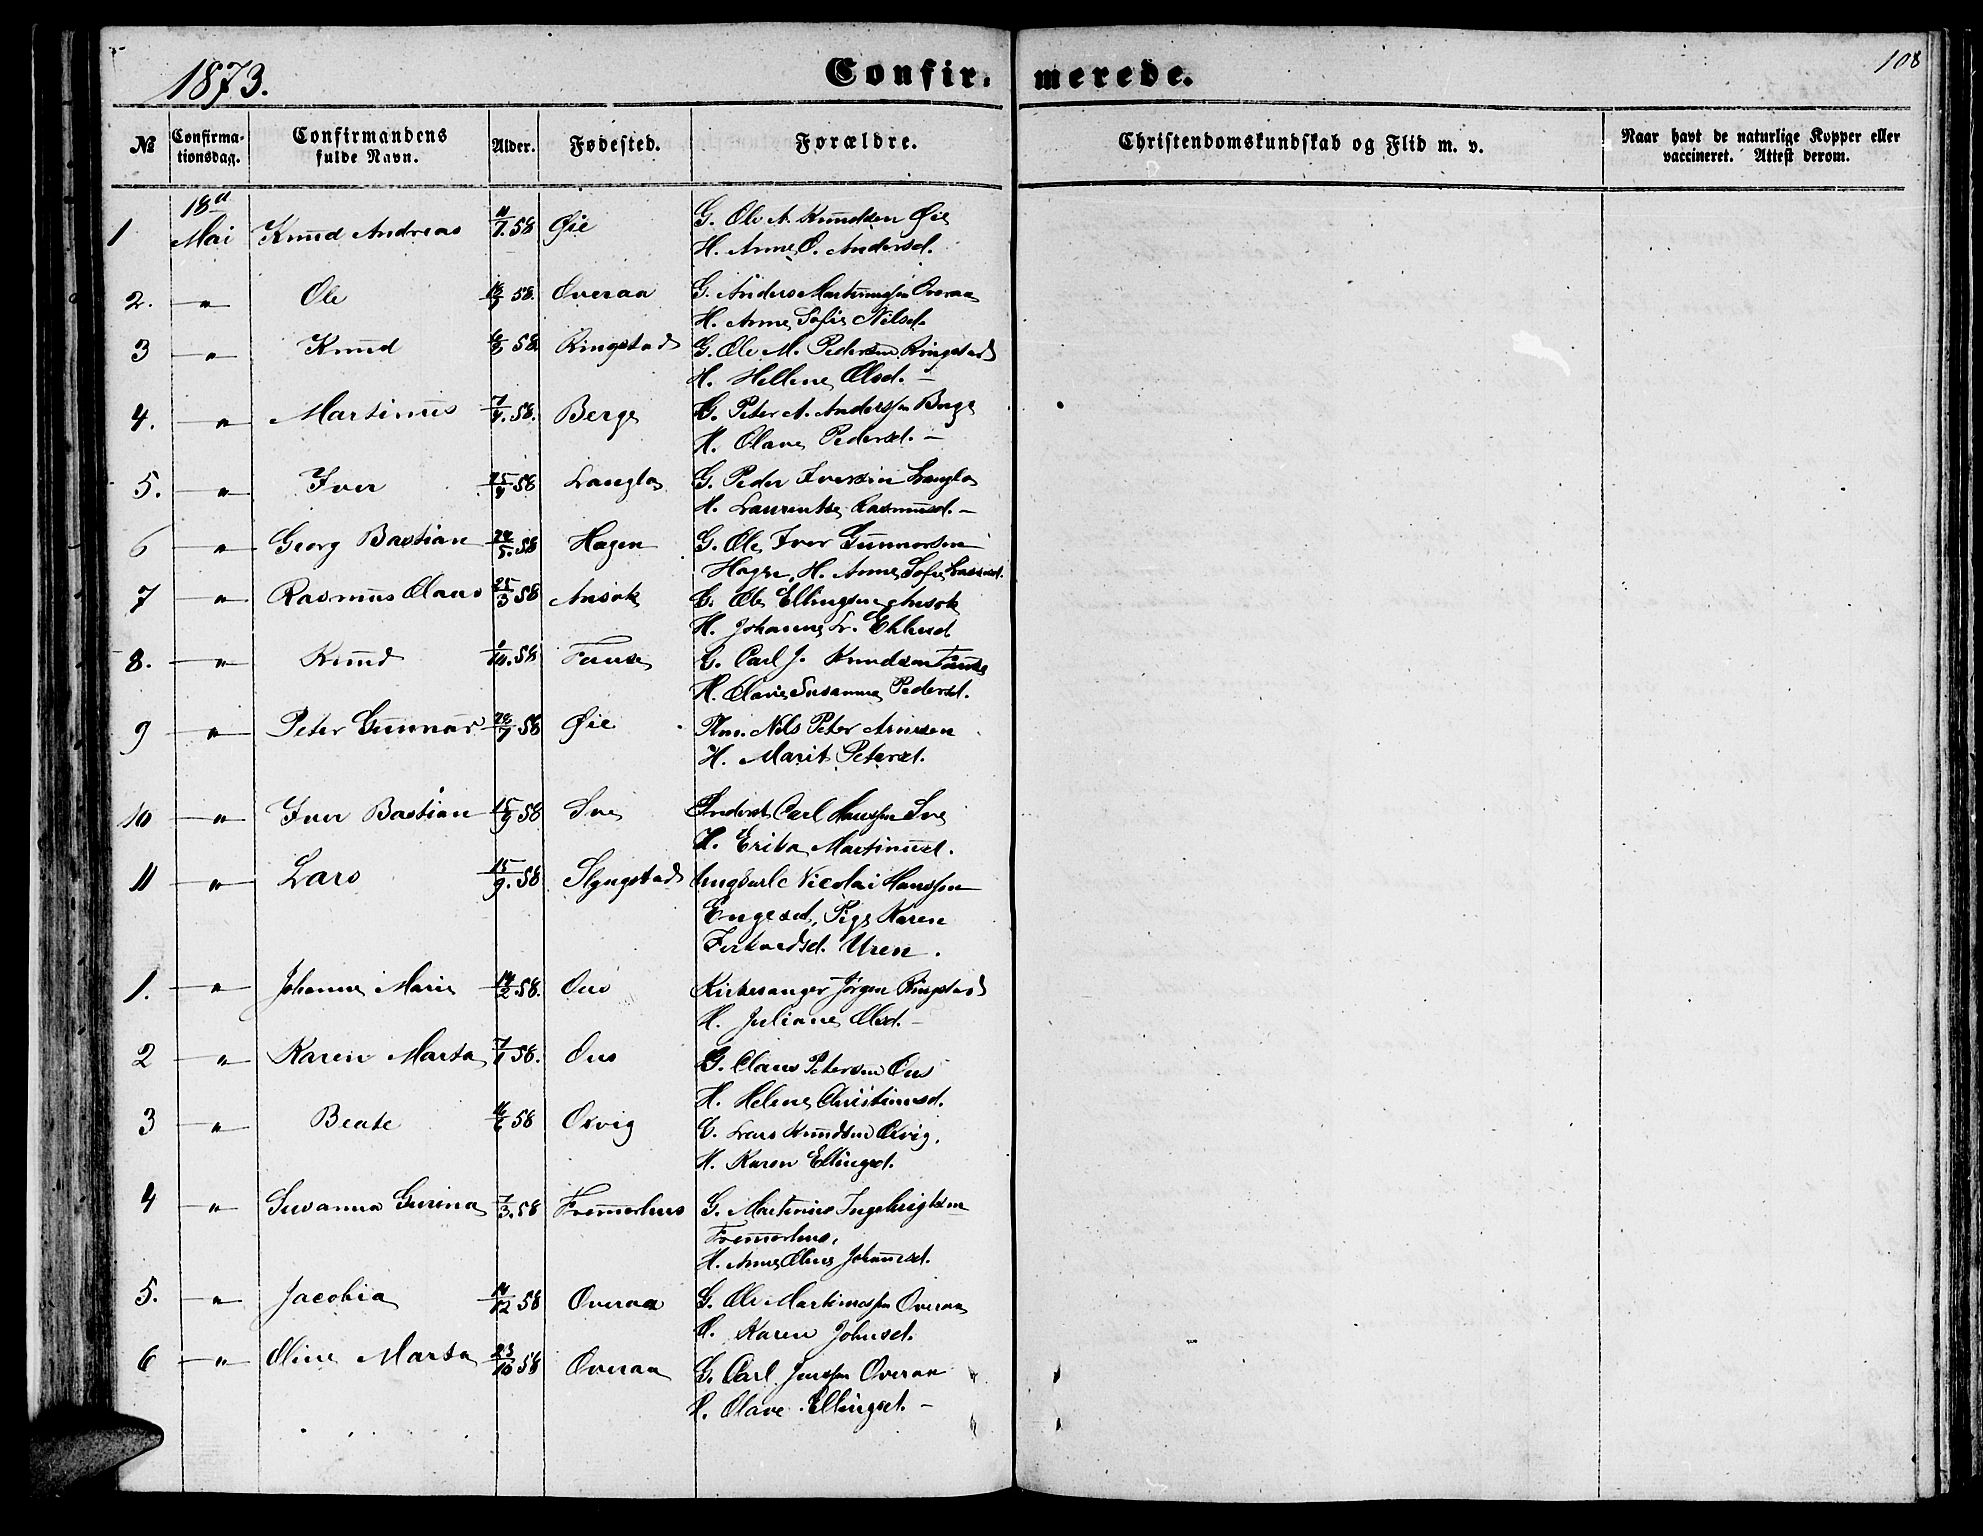 1873. Confir- merede. 108
№ Confirma-tionsdag. Confirmandens fulde Navn. Alder. Fødested. Forældre. Christendomskundskab og Flid m. v. Naar havt de naturlige Kopper eller vaccineret. Attest derom.
18d
1 Mai Knud Andreas 11/7.58 Øie G. Ole A. Knudsen Øie
H. Anne O. Andersd.
2. " Ole 58. Overaa G. Anders Martinussen Overaa
H. Anne Sofie Nilsd.
3 " Knud 58. Ringstad G. Ole M. Pedersen Ringstad
H. Hellene Olsd. —
4. " Martinus 58. Berge G. Peter A. Anderssen Berge
H. Olave Pedersd. —
5. " Iver 58 Langlo G. Peder Iversen Langlo
H. Laurentse Rasmusd. —
6 " Georg Bastian 58 Hagen G. Ole Iver Gunnarsen
Hagen, H. Anne Sofie Lassesd.
7 " Rasmus Claus 25/3 58 Ansok G. Ole Ellingsen Ansok
H. Johanne Lr.
8. " Knud 58 Fause G. Carl J. Knudsen Fause
H. Olavie Susanna Pedersd.
9 " Peter Gunnar 58 Øie Plm. Nils Peter Arnesen
H. Marit Petersd.
10 " Iver Bastian 15/9 58 Sve Inderst Carl Hanssen Sve
H. Erika Martinusd.
11 " Lars 15/9.58 Slyngstad Ungkarl Nicolai Hanssen
Engeset, Pige Karen
Uren.
1. " Johanne Marie 58. Ous Kirkesanger Jørgen Ringstad
H. Juliane Olsd. —
2 " Karen Marta 58. Ous G. Claus Petersen Ous
H. Helene Christiansd.
3 " Beate 58 Oxvig G. Lars Knudsen Oxvig.
H. Karen Ellingsd.
4 " Susanna Gurina 7/3.58 Fremerhus G. Martinus Ingebrigtsen
Fremerhus,
H. Anne Oline Johansd.
5. " Jacobia 14/12 58 Overaa G. Ole Martinussen Overaa
H. Karen Johnsd.
6 " Oline Marta 23/10 58 Overaa G. Carl Jenssen Overaa
H. Olave Ellingsd. —